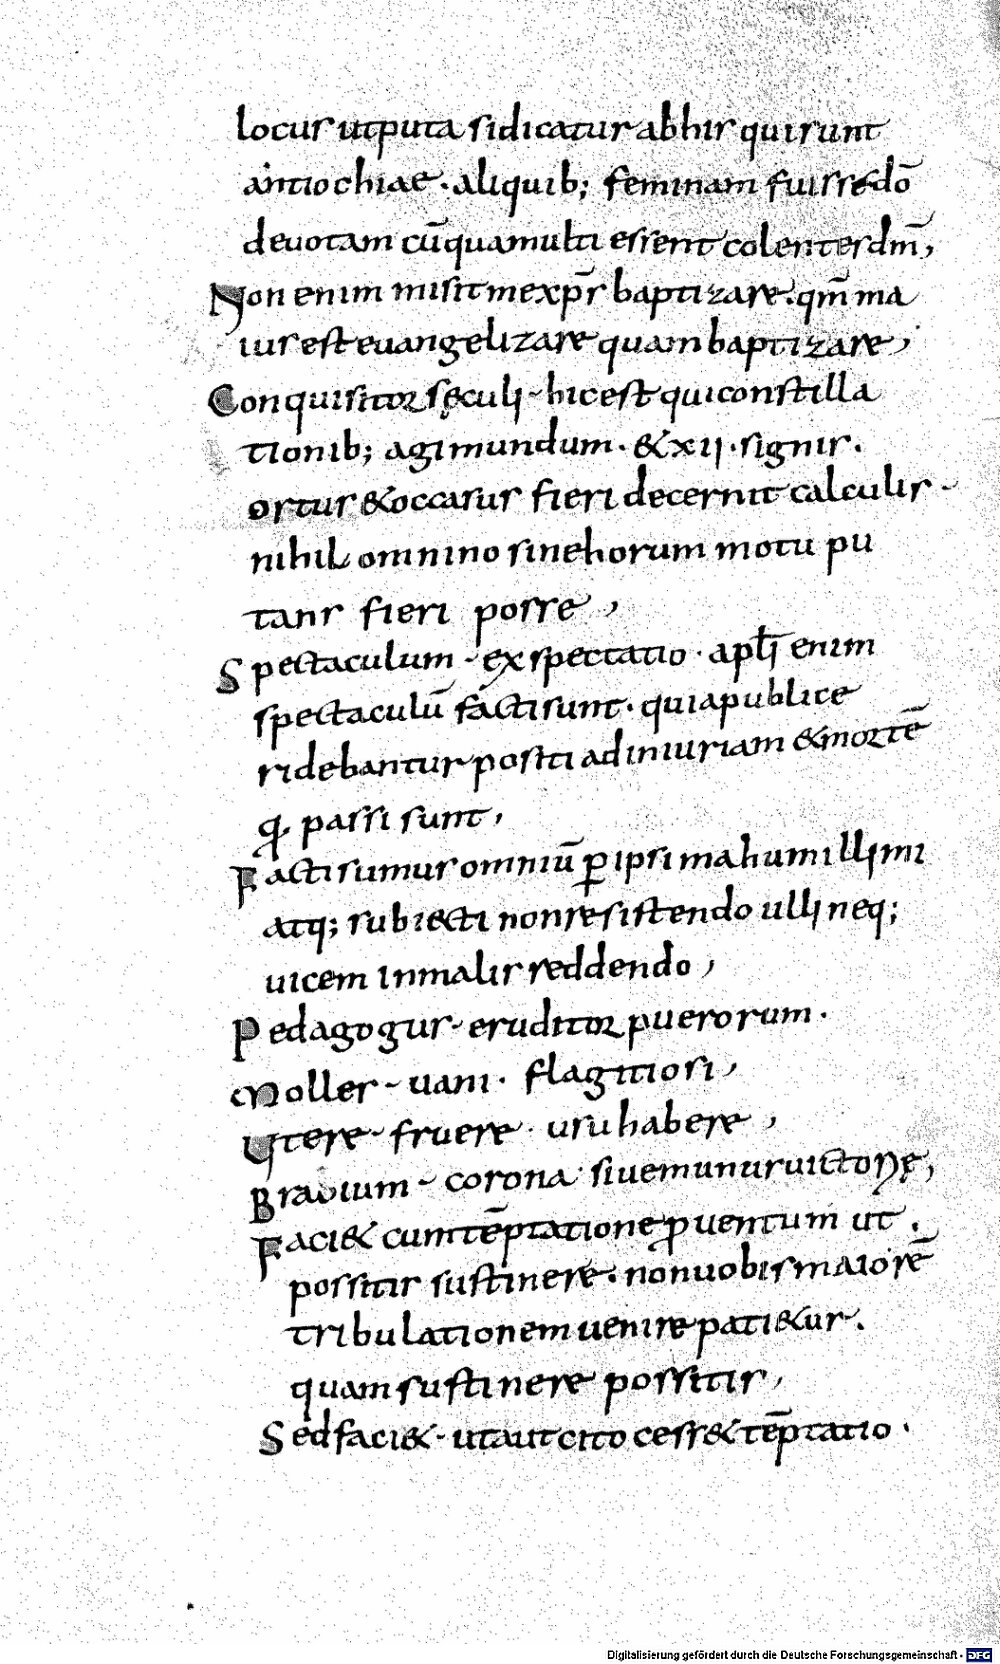 locus utputa sidicatur abhis quisunt
antiochiae · aliquib; feminam fuisse dō
deuotam cū quamulti essent colentes dm̄,
Non enim misit me xp̄s baptizare · qm̄ ma
ius est euangelizare quam baptizare,
Conquisitor sęculi - hic est qui constilla
tionib; agi mundum · & xii · signis ·
ortus & occasus fieri decernit calculis -
nihil omnino sine horum motu pu
tans fieri posse,
Spectaculum - exspectatio · apl̄i enim
spectaculū facti sunt · quia publice
ridebantur positi ad iniuriam & mortē
q passi sunt,
Facti sumus omniū ꝑipsima humillimi
atq; subiecti non resistendo ulli neq;
uicem in malis reddendo,
Pedagogus - eruditor puerorum ·
Molles - uani · flagitiosi,
Utere - fruere · usu habere,
Brauium - corona siue munus uictorię,
Faci& cum tēptatione ꝓuentum ut ·
possitis sustinere · non uobis maiorē
tribulationem uenire pati&ur ·
quam sustinere possitis,
Sed faci& - ut aut cito cess& tēptatio ·
Digitalisierung gefördert durch die Deutsche Forschungsgemeinschaft - DFG